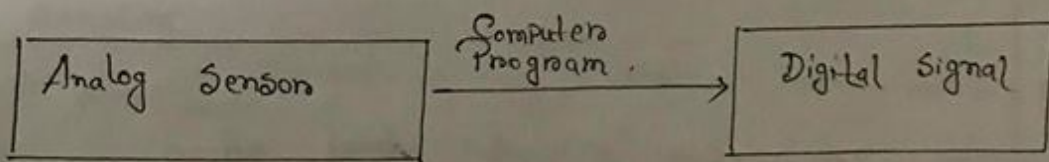 Analog Sensor
Computer
Program.
Digital Signal